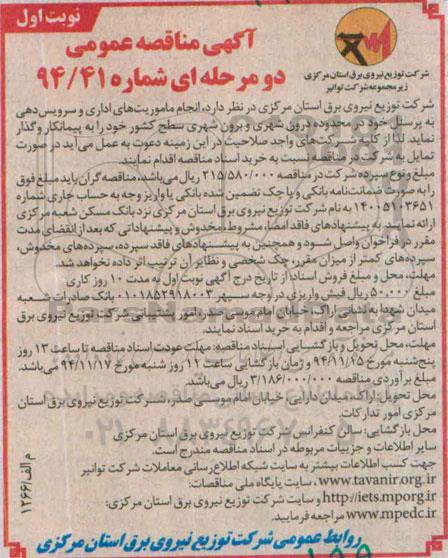 نوبت اول
آگهی مناقصه عمومی
دو مرحله ای شماره ۹۴/۴۱
شرکت توزیع نیروی برق استان مرکزی
زیر مجموعه شرکت توانیر
شرکت توزیع نیروی برق استان مرکزی در نظر دارد، انجام ماموریت‌های اداری و سرویس‌دهی
به پرسنل خود در محدوده درون شهری و برون شهری سطح کشور خود را به پیمانکار واگذار
نماید. لذا از کلیه شرکت‌های واجد صلاحیت در این زمینه دعوت به عمل می‌آید در صورت
تمایل به شرکت در مناقصه نسبت به خرید اسناد مناقصه اقدام نمایند.
مبلغ و نوع سپرده شرکت در مناقصه ۲۱۵/۵۸۰/۰۰۰ ریال می‌باشد، مناقصه گران باید مبلغ فوق
را به صورت ضمانت‌نامه بانکی و یا چک تضمین شده بانکی یا واریز وجه به حساب جاری شماره
۱۴۰۰۵۱۰۳۶۵۱ به نام شرکت توزیع نیروی برق استان مرکزی نزد بانک مسکن شعبه مرکزی
ارائه نمایند. به پیشنهادهای فاقد امضا، مشروط، مخدوش و پیشنهاداتی که بعد از انقضای مدت
مقرر در فراخوان واصل شود و همچنین به پیشنهادهای فاقد سپرده، سپرده‌های مخدوش،
سپرده‌های کمتر از میزان مقرر، چک شخصی و نظایر آن ترتیب اثر داده نخواهد شد.
مهلت، محل و مبلغ فروش اسناد: از تاریخ درج آگهی نوبت اول به مدت ۱۰ روز کاری
مبلغ ۵۰۰۰۰۰ ریال فیش واریزی در وجه سپهر ۰۱۰۱۸۵۲۹۱۸۰۰۳ بانک صادرات شعبه
میدان شهدا به نشانی اراک، خیابان امام موسی صدر، امور پشتیبانی شرکت توزیع نیروی برق
استان مرکزی مراجعه و اقدام به خرید اسناد نمایند.
مهلت، محل تحویل و بازگشایی اسناد مناقصه: مهلت عودت اسناد مناقصه تا ساعت ۱۳ روز
پنج‌شنبه مورخ ۹۴/۱۱/۱۵ و زمان بازگشایی ساعت ۱۱ روز شنبه مورخ ۹۴/۱۱/۱۷ می‌باشد.
مبلغ برآوردی مناقصه ۳/۱۸۶/۰۰۰/۰۰۰ ریال می‌باشد.
محل تحویل: اراک، میدان دارایی خیابان امام موسی صدر، شرکت توزیع نیروی برق استان
مرکزی امور تدارکات.
محل بازگشایی: سالن کنفرانس شرکت توزیع نیروی برق استان مرکزی
سایر اطلاعات و جزییات مربوطه در اسناد مناقصه مندرج است.
جهت کسب اطلاعات بیشتر به سایت شبکه اطلاع‌رسانی معاملات شرکت توانیر
www.tavanir.org.ir، سایت پایگاه ملی مناقصات:
http://iets.mporg.ir و سایت شرکت توزیع نیروی برق استان مرکزی:
www.mpedc.ir مراجعه فرمایید.
روابط عمومی شرکت توزیع نیروی برق استان مرکزی
م الف/۱۲۶۶